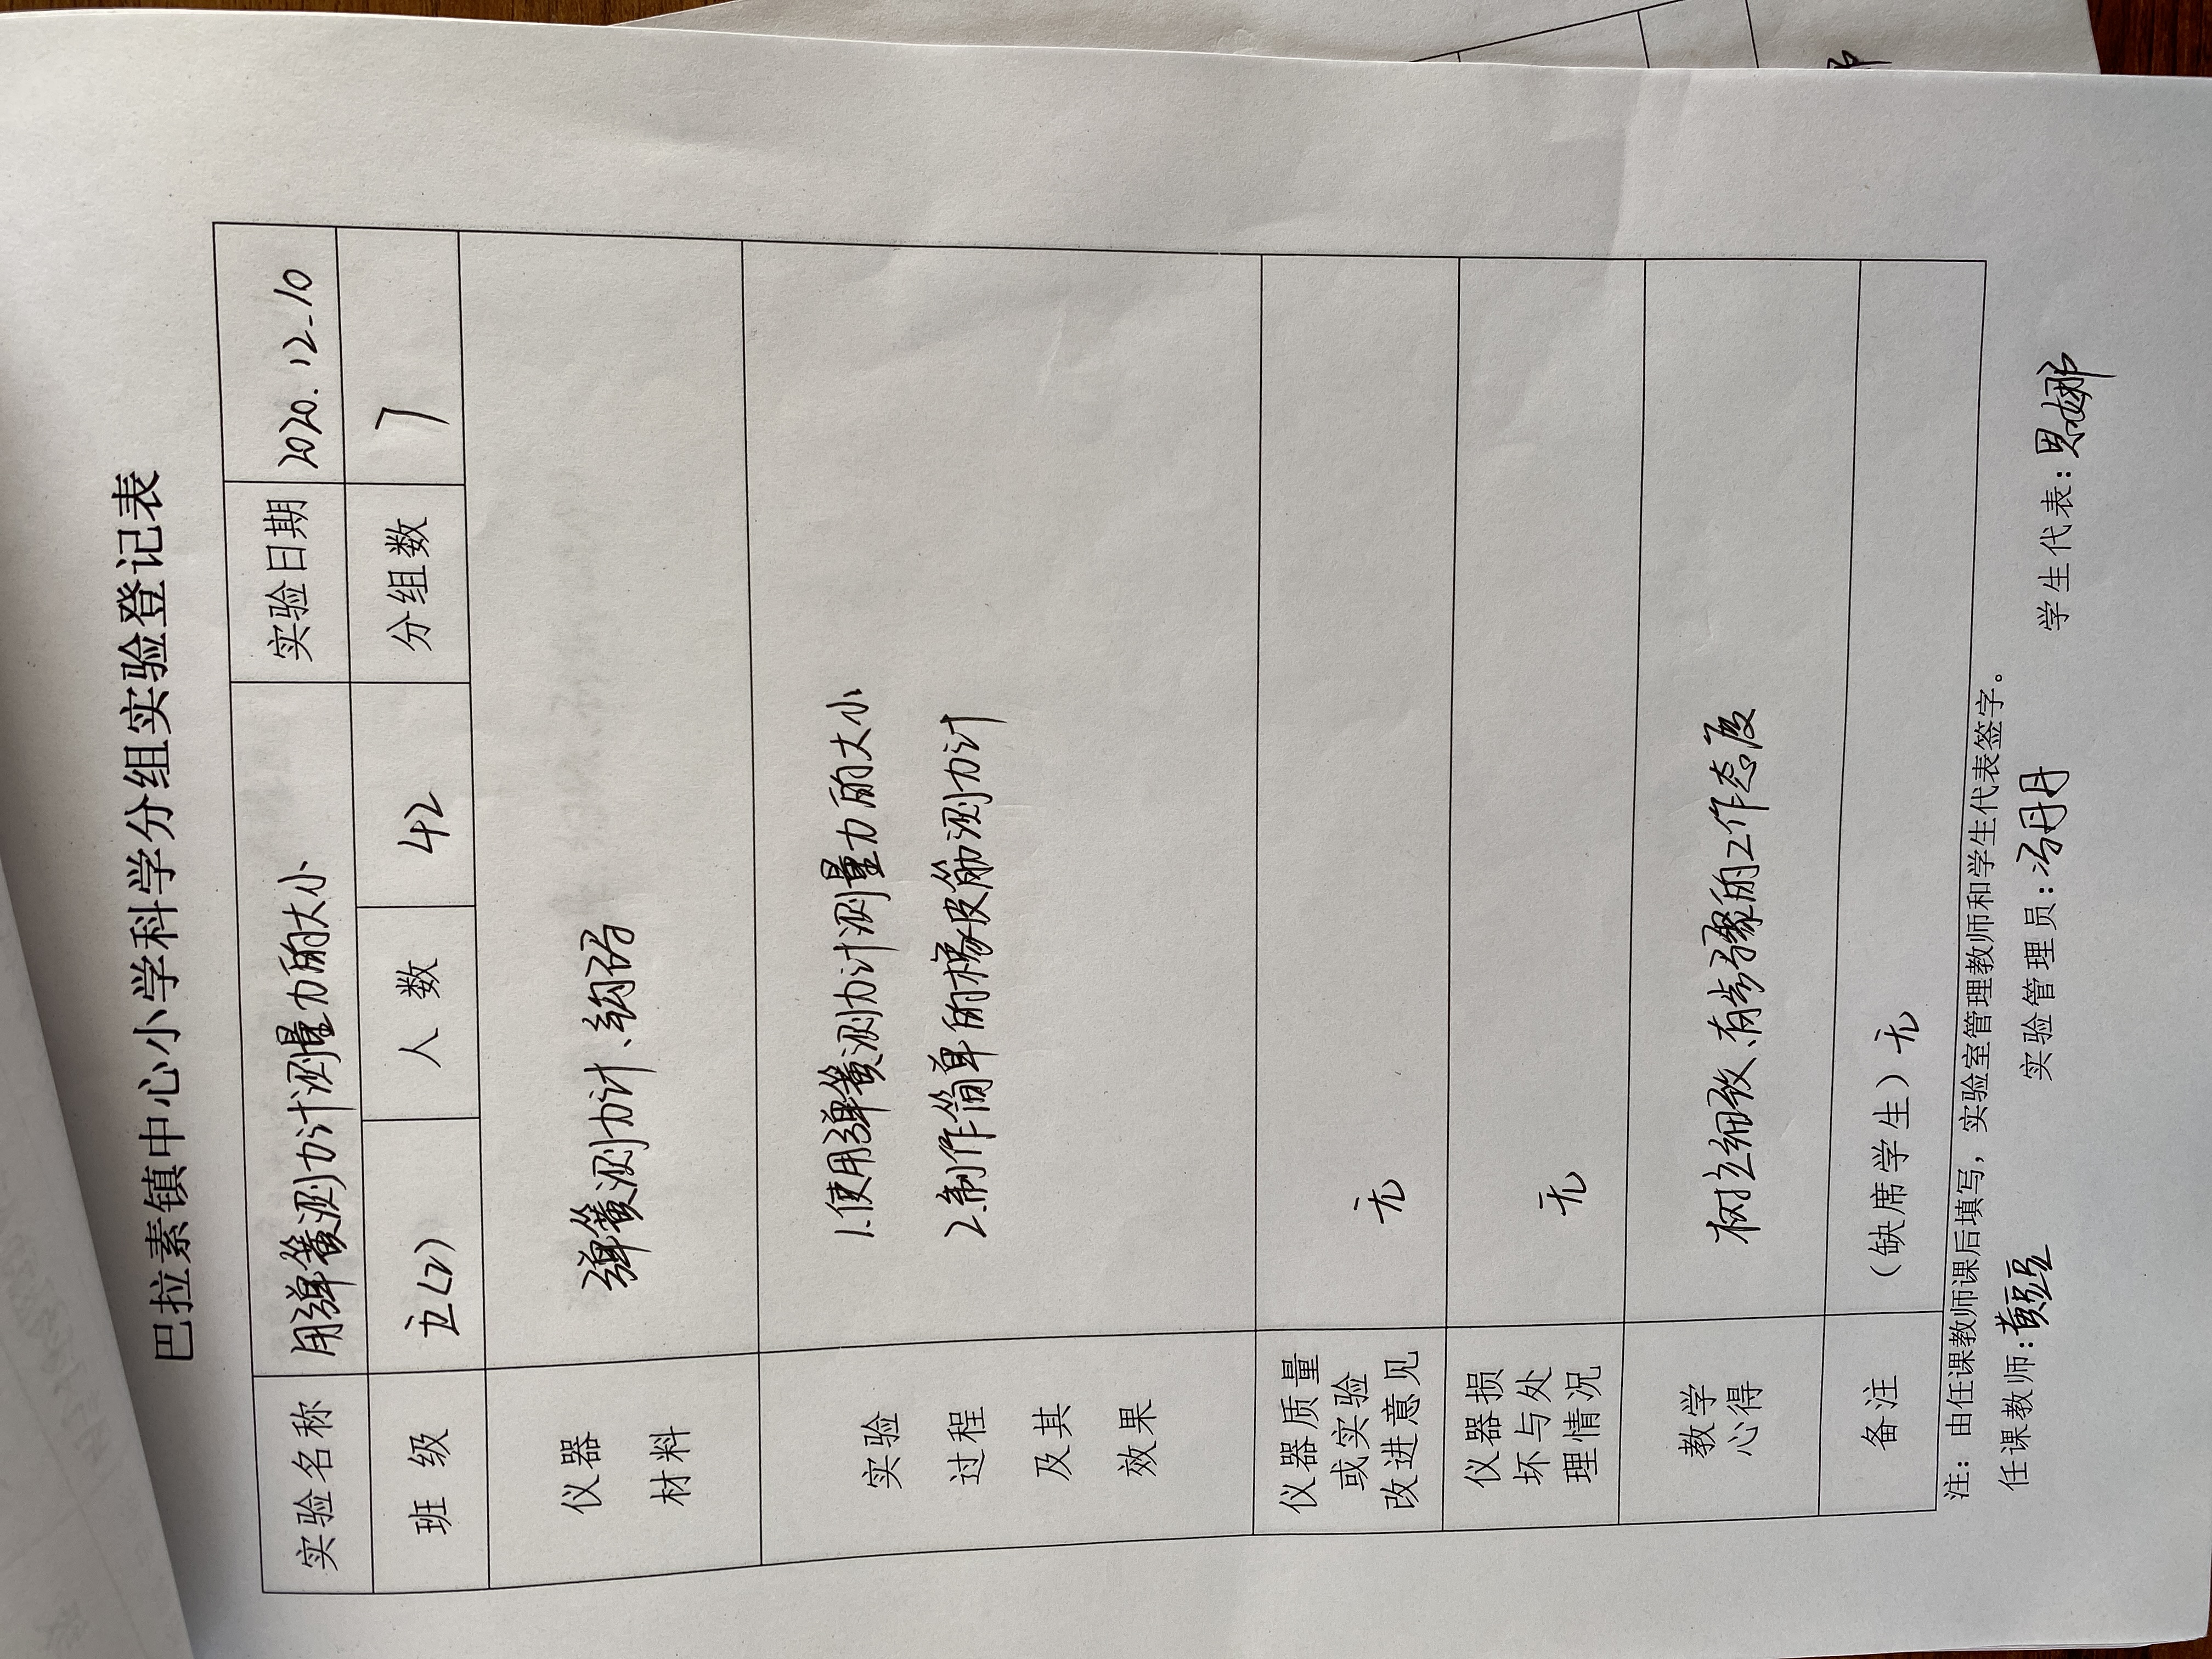 巴拉素镇中心小学科学分组实验登记表
实验名称 用弹簧测力计测量力的大小 实验日期 2020.12-10
班 级 五(2) 人 数 42 分组数 7
仪器
材料
弹簧测力计、钩码
实验
过程
及其
效果
1.使用弹簧测力计测量力的大小
2.制作简单的橡皮筋测力计
仪器质量
或实验
改进意见
无
仪器损
坏与处
理情况
无
教学
心得
树立细致、有步骤的工作态度
备注 (缺席学生) 无
注: 由任课教师课后填写, 实验室管理教师和学生代表签字。
任课教师: 黄豆豆 实验管理员: 冯丹丹 学生代表: 思娜